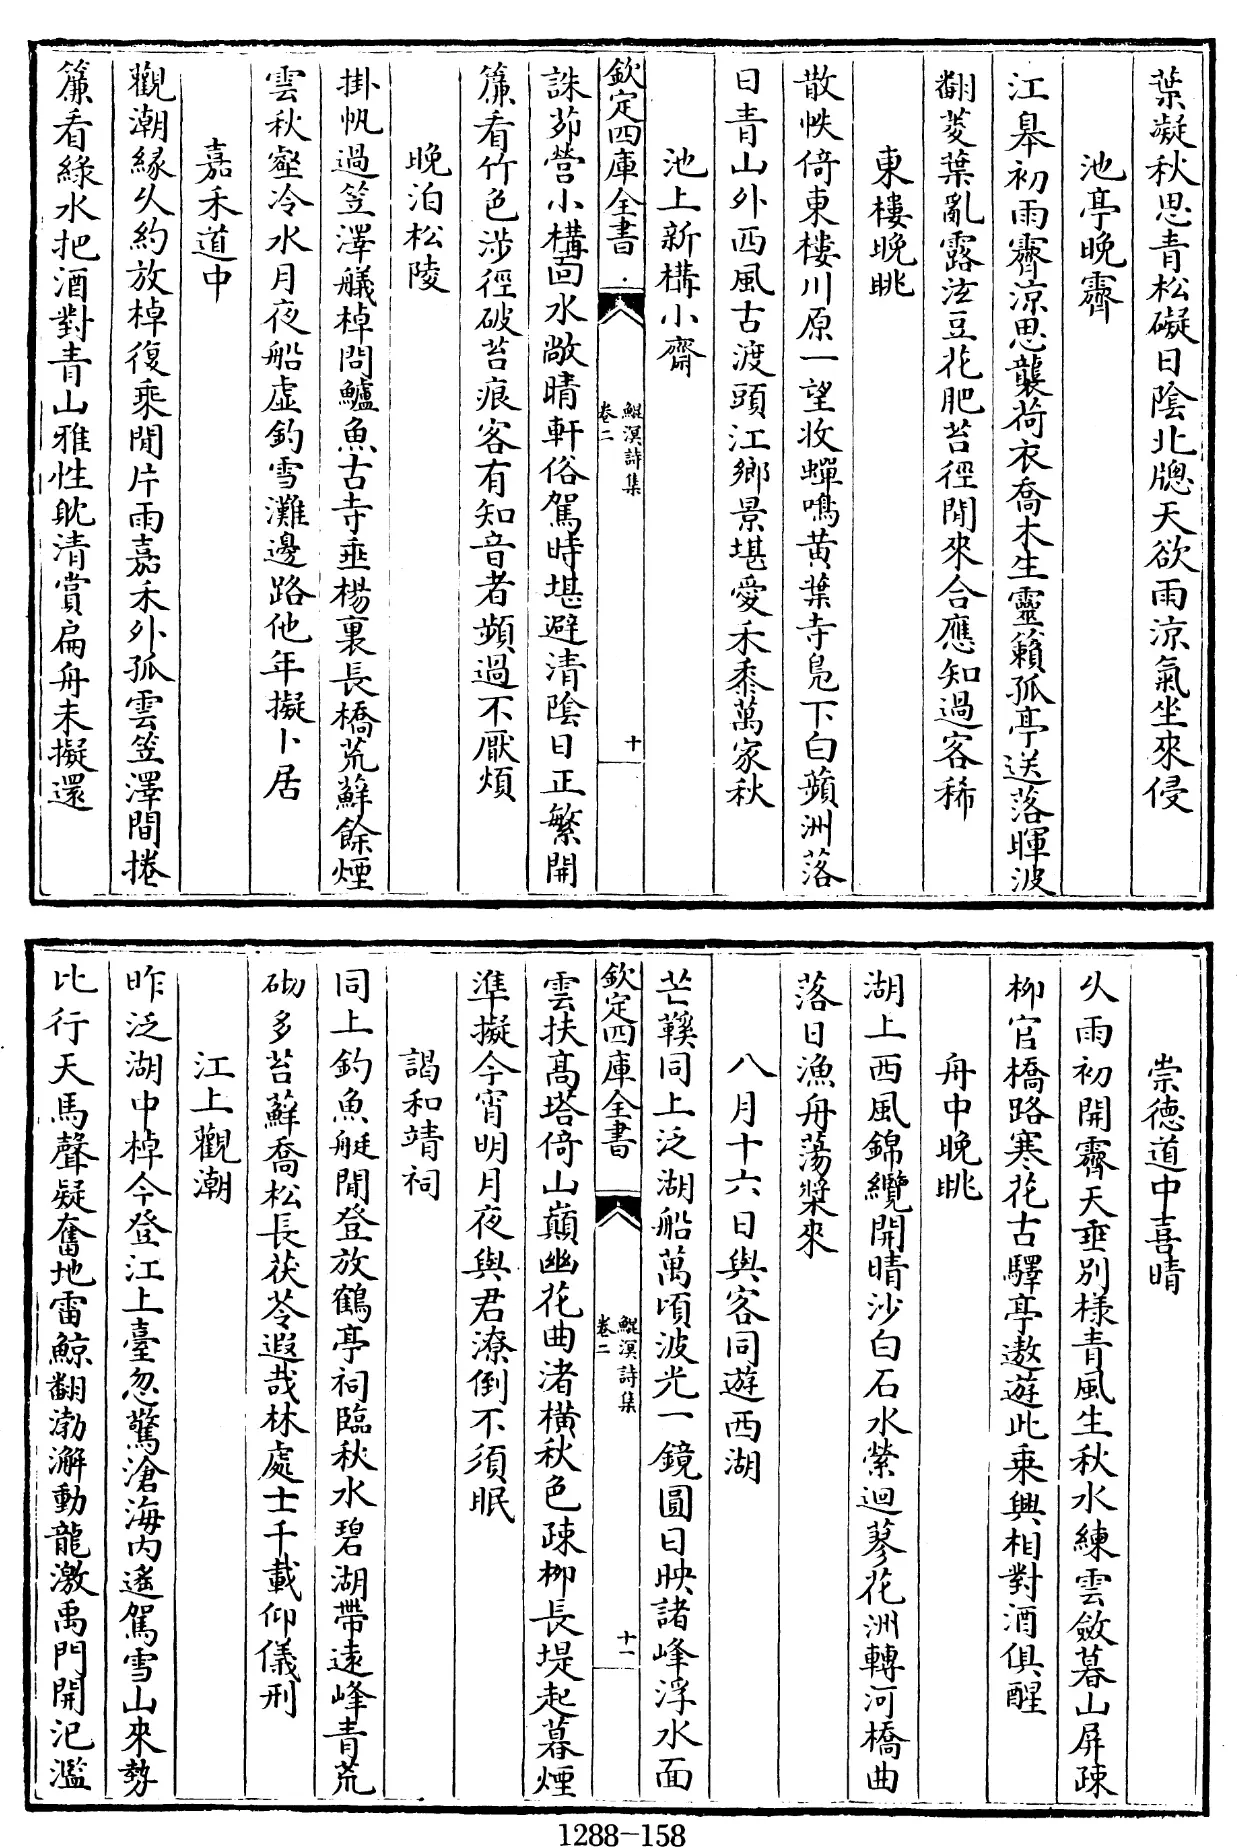 葉凝秋思青松礙日陰北牕天欲雨涼氣坐來侵
池亭晚霽
江皋初雨霽涼思襲荷衣喬木生靈籟孤亭送落暉波
翻菱葉亂露泫豆花肥苔徑閒來合應知過客稀
東樓晚眺
散帙倚東樓川原一望收蟬鳴黄葉寺鳬下白蘋洲落
日青山外西風古渡頭江鄉景堪愛禾黍萬家秋
池上新構小齋
欽定四庫全書
鯤溟詩集
卷二
十
誅茆營小構面水敞晴軒俗駕時堪避清陰日正繁開
簾看竹色涉徑破苔痕客有知音者頻過不厭煩
晚泊松陵
掛帆過笠澤艤棹問鱸魚古寺垂楊裏長橋荒蘚餘煙
雲秋壑冷水月夜船虚釣雪灘邊路他年擬卜居
嘉禾道中
觀潮緣乆約放棹復乘閒片雨嘉禾外孤雲笠澤間捲
簾看綠水把酒對青山雅性耽清賞扁舟未擬還
崇德道中喜晴
乆雨初開霽天垂别様青風生秋水練雲斂暮山屏疎
柳官橋路寒花古驛亭遨遊此乗興相對酒俱醒
舟中晚眺
湖上西風錦纜開晴沙白石水縈迴蓼花洲轉河橋曲
落日漁舟蕩槳來
八月十六日與客同遊西湖
芒鞵同上泛湖船萬頃波光一鏡圓日映諸峰浮水面
欽定四庫全書
鯤溟詩集
卷二
十一
雲扶髙塔倚山巔幽花曲渚橫秋色疎柳長堤起暮煙
準擬今宵明月夜與君潦倒不須眠
謁和靖祠
同上釣魚艇閒登放鶴亭祠臨秋水碧湖帶逺峰青荒
砌多苔蘚喬松長茯苓遐哉林處士千載仰儀刑
江上觀潮
昨泛湖中棹今登江上臺忽驚滄海内遙駕雪山來勢
比行天馬聲疑奮地雷鯨翻渤澥動龍激禹門開氾濫
1288-158